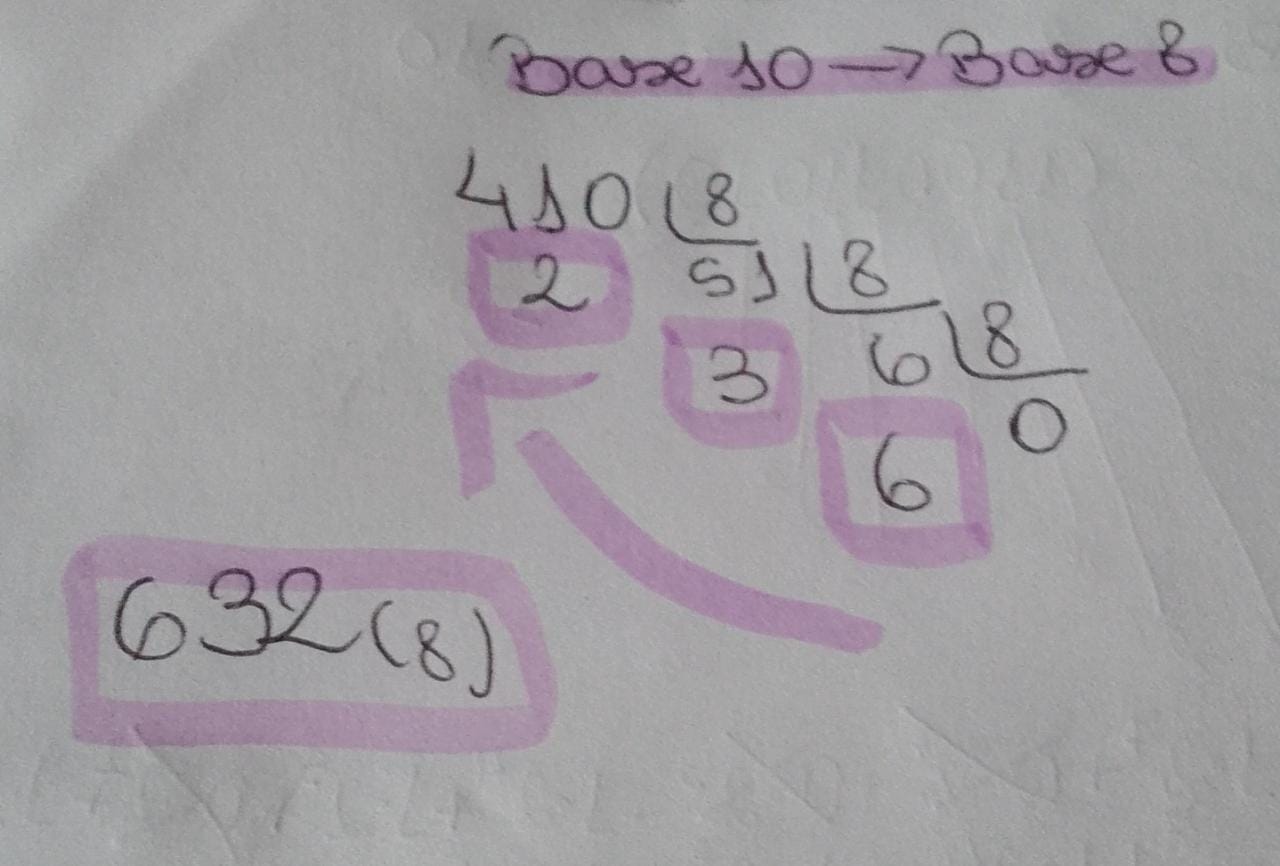 Base 10 → Base 8
410 8
2 51 8
3 6 8
6 0
632(8)